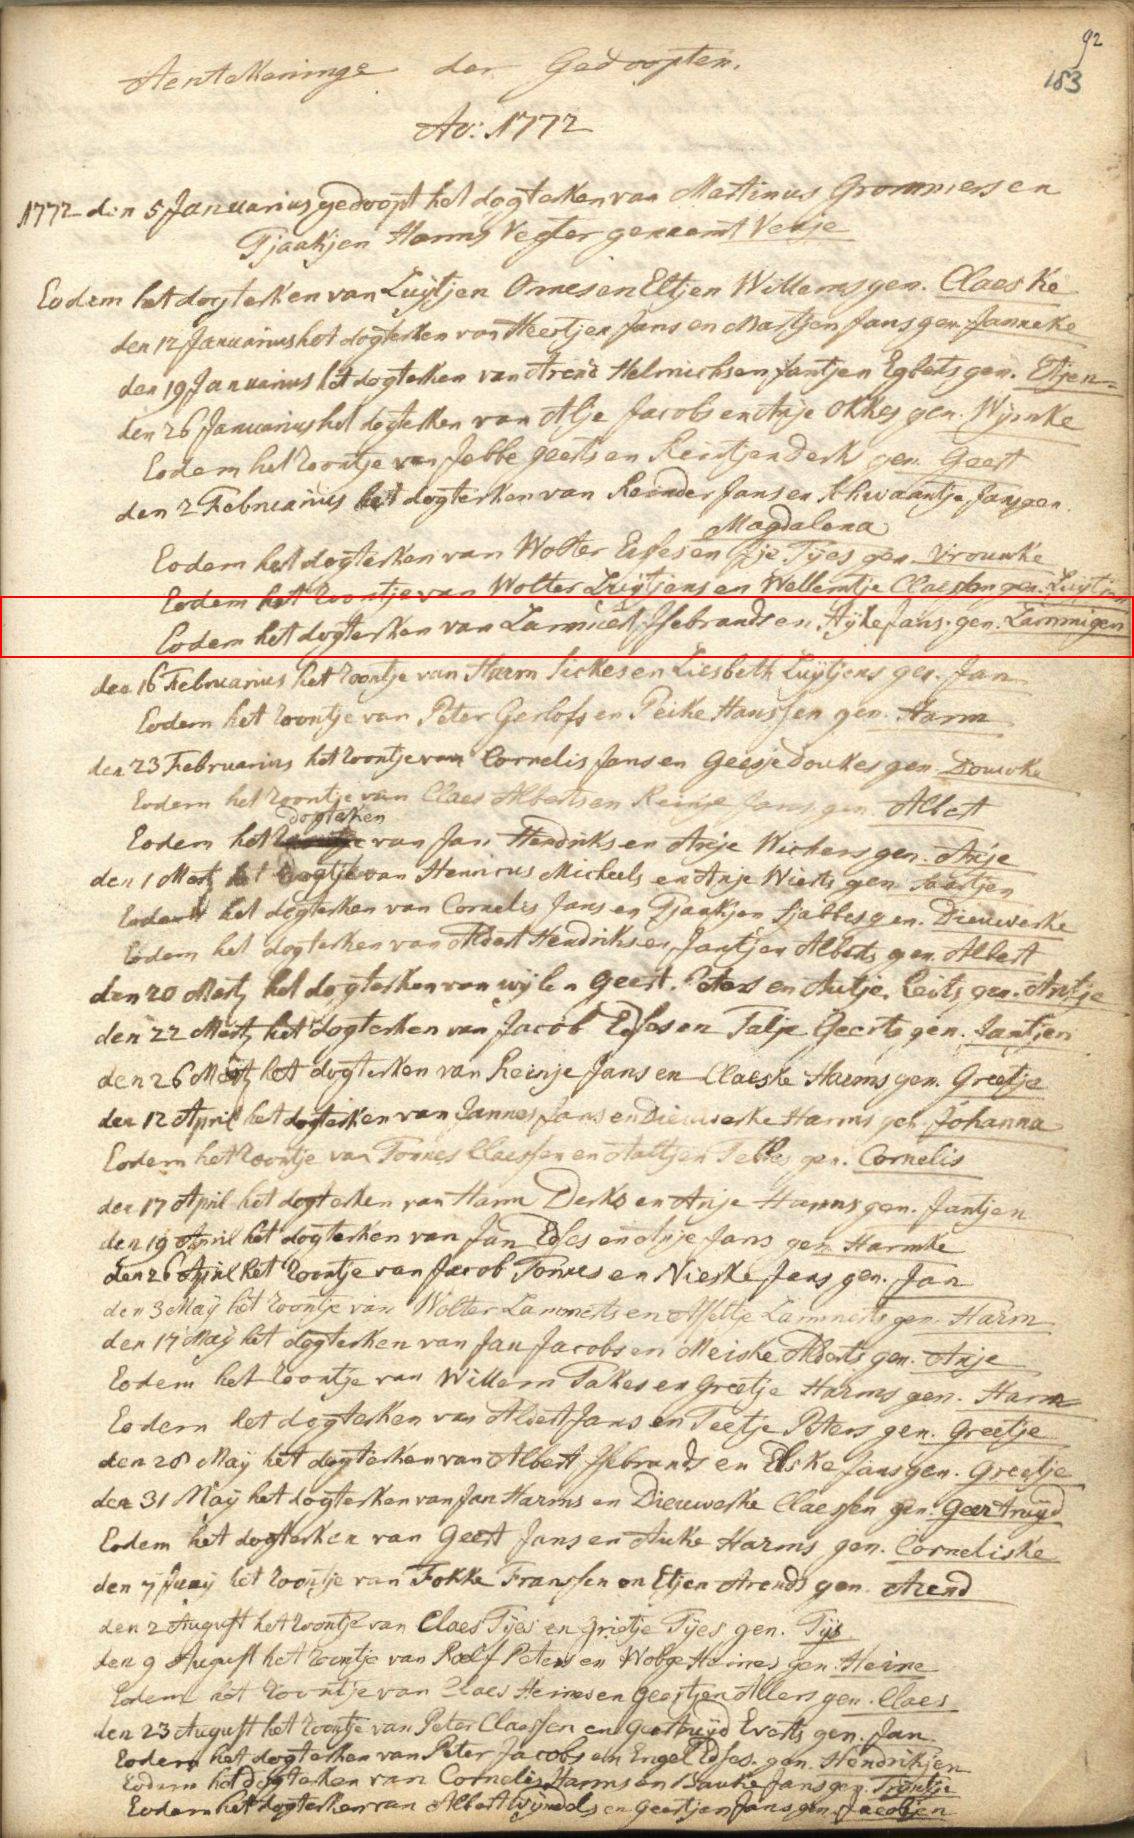 92
183
Aentekeninge der Gedoopten.
Ao: 1772
1772 den 5 Januarius gedoopt het dogterken van Martinus Grommers en
Tjaakjen Harms Vegter genaemt Venje
Eodem het dogterken van Luytjen Omes en Eltjen Willems gen. Claeske
den 12 Januarius het dogterken van Meertjen Jans en Martjen Jans gen. Janneke
den 19 Januarius het dogterken van Arend Helmichs en Jantjen Egberts gen. Etjen
den 26 Januarius het dogterken van Alje Jacobs en Anje Okkes gen. Wijnke
Eodem het Zoontje van Jebbe Geerts en Reintjen Derks gen. Geert
den 2 Februarius het dogterken van Reinder Jans en Schwaantje Jans gen.
Magdalena
Eodem het dogterken van Wolter Eefses en Tyes gen. Vrouwke
Eodem het Zoontje van Wolter Luytjens en Wellemtje Claessen gen. Luytjen
Eodem het dogterken van Lammert Ysebrands en Hyke Jans. gen. Lammigen
den 16 Februarius het Zoontje van Harm Sickes en Liesbeth Luytjens gen. Jan
Eodem het Zoontje van Peter Gerlofs en Peike Hanssen gen. Harm
den 23 Februarius het Zoontje van Cornelis Jans en Geesje Doukes gen. Douwke
Eodem het Zoontje van Claes Alberts en Reinje Jans gen. Albert
dogterken
Eodem het van Jan Hendriks en Anje Wichers gen. Anje
den 1 Mertz het dogtje van Henricus Micheels en Anje Wierts gen.
Eodem het dogterken van Cornelis Jans en Tjaakjen Sjabbes gen. Dieuwerke
Eodem het dogterken van Albert Hendriks en Jantjen Alberts gen. Albert
den 20 Mertz het dogterken van wijlen Geert Peters en Antje gen. Antje
den 22 Mertz het dogterken van Jacob Edses en Talje Geerts gen. Jantjen
den 26 Mertz het dogterken van Reinje Jans en Claeske Harms gen. Greetje
den 12 April het dogterken van Jannes Jans en Dieuwerke Harms gen. Johanna
Eodem het Zoontje van Tonnes Claessen en Aaltjen Tebbes gen. Cornelis
den 17 April het dogterken van Harm Derks en Anje Harms gen. Jantjen
den 19 April het dogterken van Jan Edses en Anje Jans gen. Harmke
den 26 April het Zoontje van Jacob Tonnes en Nieske Jans gen. Jan
den 3 May het Zoontje van Wolter Lammerts en Lammerts gen. Harm
den 17 May het dogterken van Jan Jacobs en Meiske Alberts gen. Anje
Eodem het Zoontje van Willem Takes en Greetje Harms gen. Harm
Eodem het dogterken van Albert Jans en Teetje Peters gen. Greetje
den 28 May het dogterken van Albert Ysebrands en Elske Jans gen. Greetje
den 31 May het dogterken van Jan Harms en Dieuwerke Claessen gen. Geertruyd
Eodem het dogterken van Geert Jans en Auke Harms gen. Corneliske
den 7 Juny het Zoontje van Fokke Franssen en Etjen Arends gen. Arend
den 2 August het Zoontje van Claes Tyes en Grietje Tyes gen. Tys
den 9 August het Zoontje van Roelf Peters en Wobge Heines gen. Heine
Eodem het Zoontje van Claes Heines en Geertjen Allers gen. Claes
den 23 August het Zoontje van Peter Claessen en Geertruyd Everts gen. Jan
Eodem het dogterken van Peter Jacobs en Engel Edses gen. Hendrikjen
Eodem het dogterken van Cornelis Harms en Bauke Jans gen. Tryntje
Eodem het dogterken van Albert en Geertjen Jans gen. Jacobjen